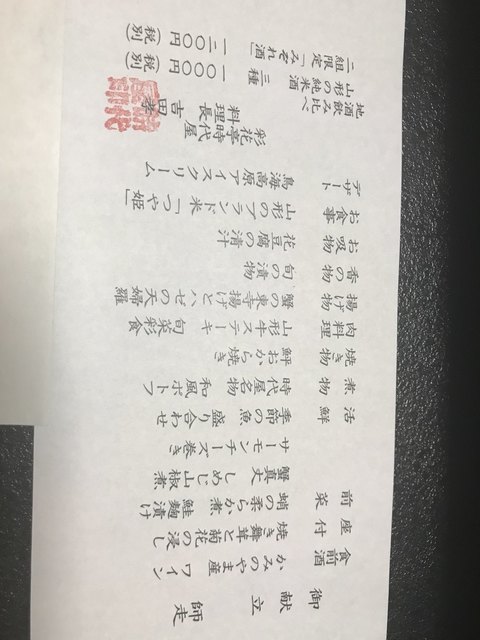 御献立 師走
食前酒 かみのやま産ワイン
座付 焼き舞茸と菊花の浸し
前菜 蛸の柔らか煮 鮭麹漬け
蟹真丈 しめじ山椒煮
サーモンチーズ巻き
活鮮 季節の魚盛り合わせ
煮物 時代屋名物 和風ポトフ
焼き物 おから焼き
肉料理 山形牛ステーキ 旬菜彩食
揚げ物 蟹の東寺揚げとハゼの天婦羅
香の物 旬の漬物
お吸物 花豆腐の清汁
お食事 山形のブランド米「つや姫」
デザート 鳥海高原アイスクリーム
彩花亭時代屋
料理長 吉田 孝
地酒飲み比べ
山形の純米酒 三種 一〇〇〇円(税別)
二組限定「みぞれ酒」 一二〇〇円(税別)